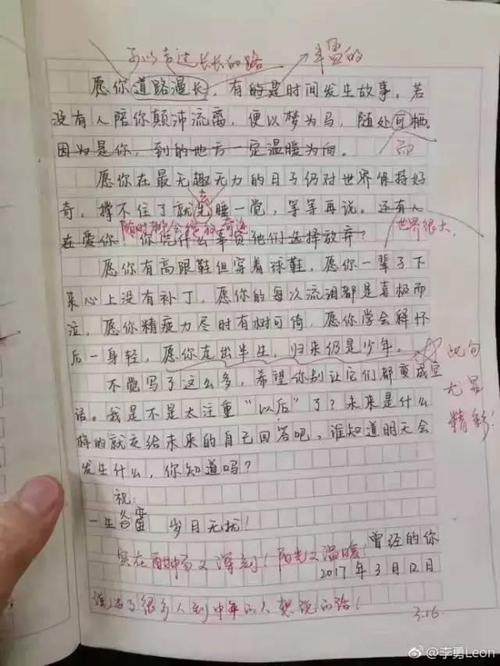 丰富的
愿你道路漫长，有的是时间发生故事。若
没有人陪你颠沛流离，便以梦为马，随处可栖。
因为是你，到的地方一定温暖为向。
而
愿你在最无趣无力的日子仍对世界保持好
奇，撑不住了就先睡一觉，等等再说。还有人
在爱你，你凭什么事算他们选择放弃？
世界很大
愿你有高跟鞋但穿着球鞋，愿你一辈子下
来心上没有补丁，愿你的每次流泪都是喜极而
泣，愿你精疲力尽时有树可倚，愿你学会释怀
后一身轻，愿你走出半生，归来仍是少年。
此句
尤显
精彩
不觉写了这么多，希望你别让它们都变成空
话。我是不是太注重“以后”了？未来是什么
样的就交给未来的自己回答吧，谁知道明天会
发生什么，你知道吗？
祝：
岁月无扰！
曾经的你
实在酣畅又深刻！阳光又温暖
2017年3月12日
说出了很多人到中年的人想说的话！
3.16
@李勇Leon